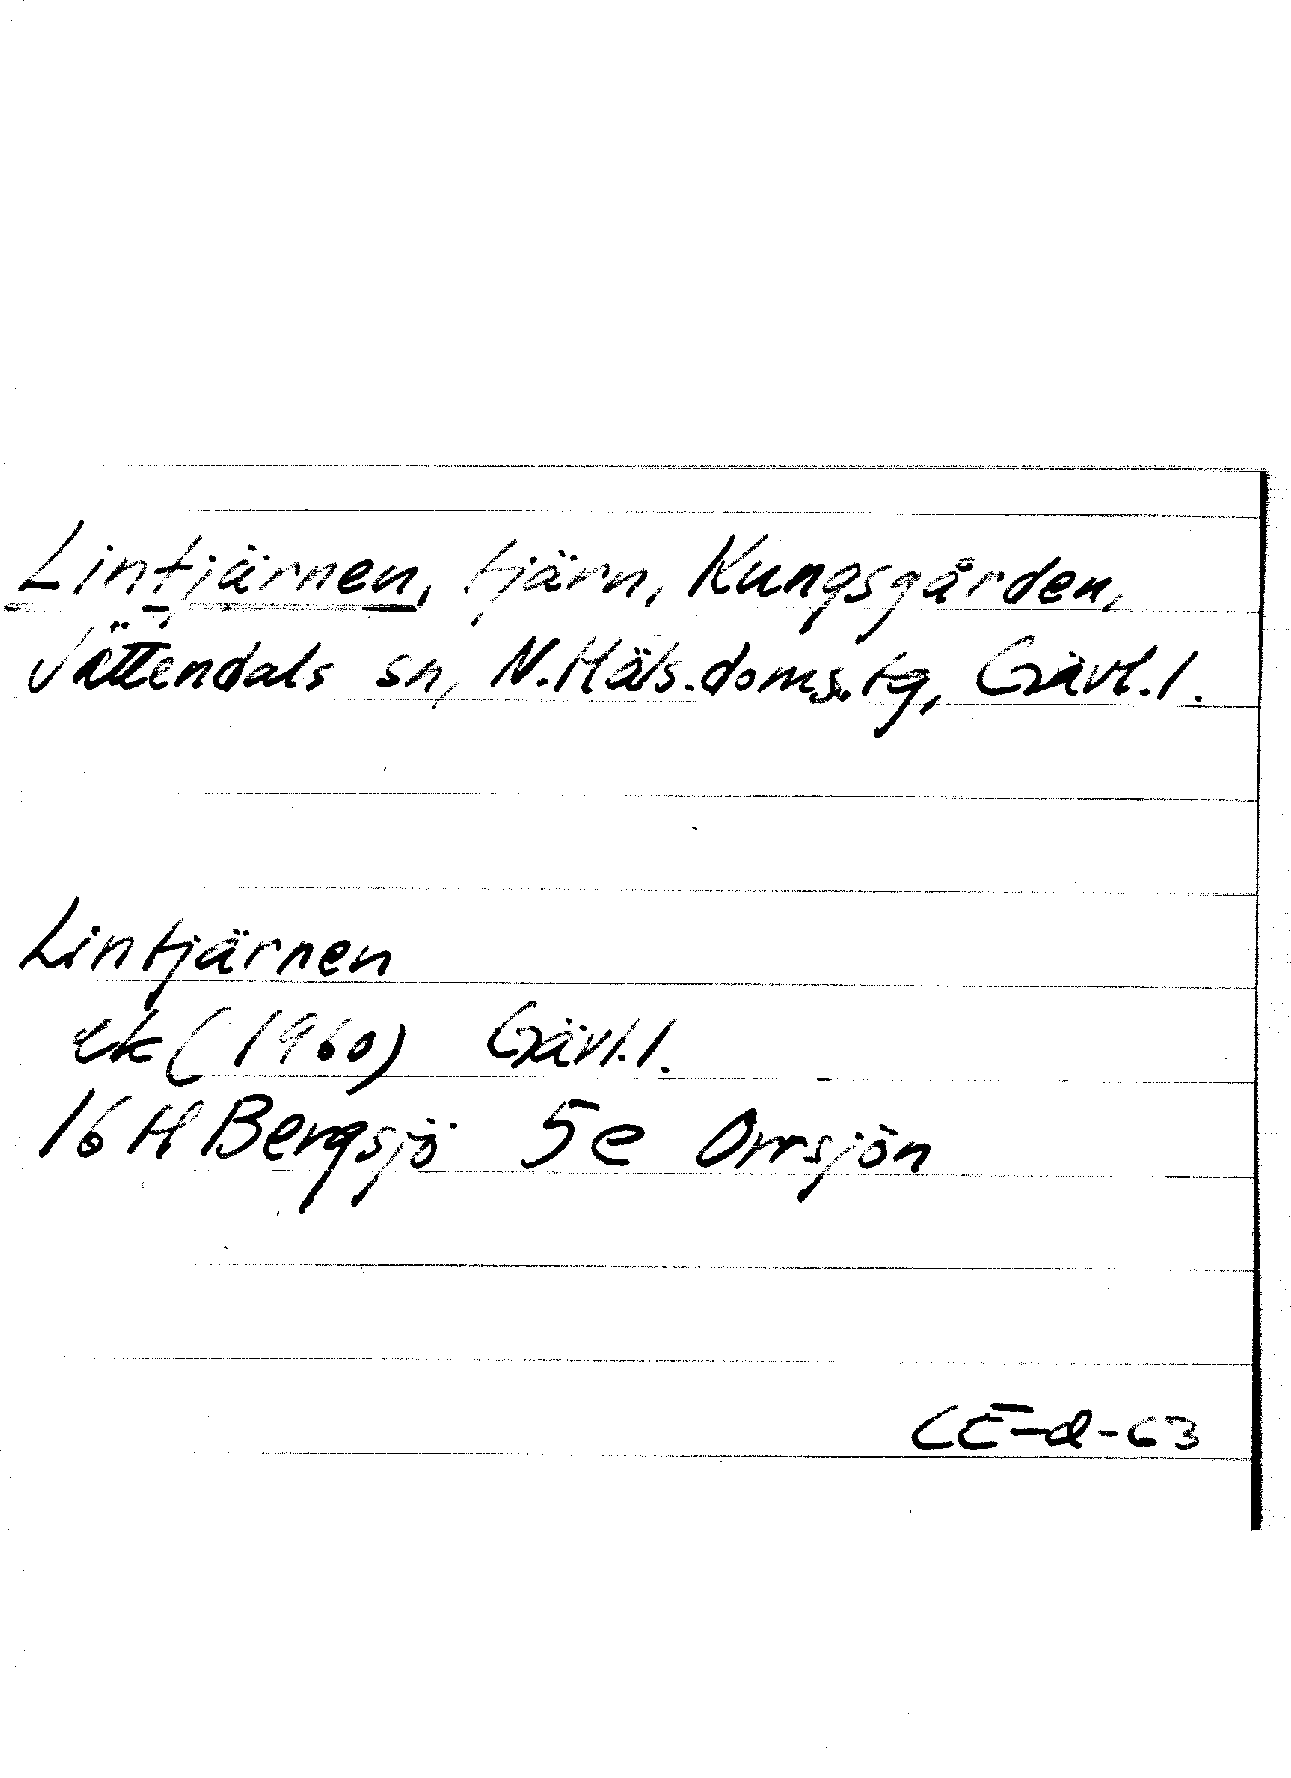 Lintjärnen, tjärn, Kungsgården,
Jättendals sn, N.Häls.doms.tg, Gävl.l.
Lintjärnen
ek (1960) Gävl.l.
16H Bergsjö 5e Orrsjön
CE-d-63